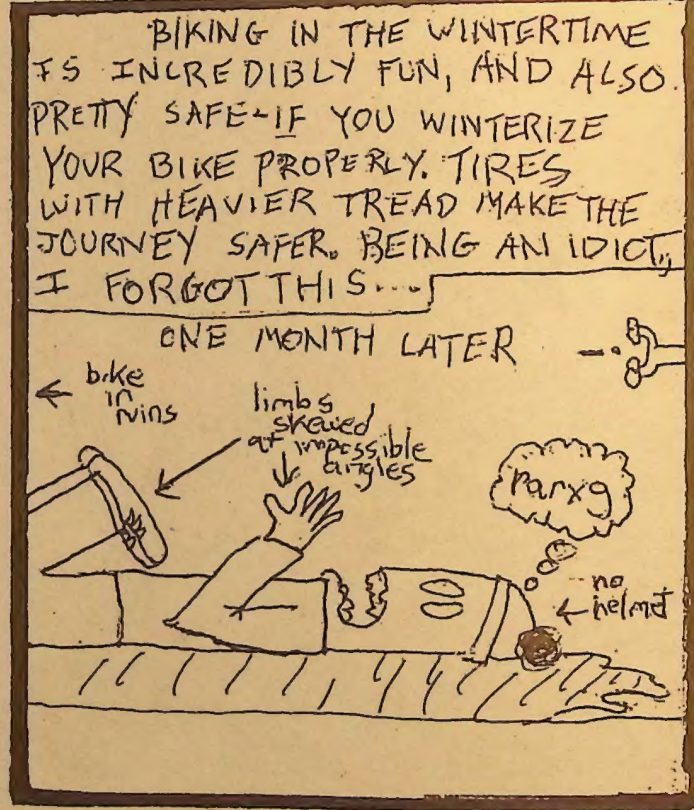 BIKING IN THE WINTERTIME
IS INCREDIBLY FUN, AND ALSO
PRETTY SAFE - IF YOU WINTERIZE
YOUR BIKE PROPERLY. TIRES
WITH HEAVIER TREAD MAKE THE
JOURNEY SAFER. BEING AN IDIOT,
I FORGOT THIS....
ONE MONTH LATER
bike
in
ruins
limbs
skewed
at impossible
angles
parxg
no
helmet